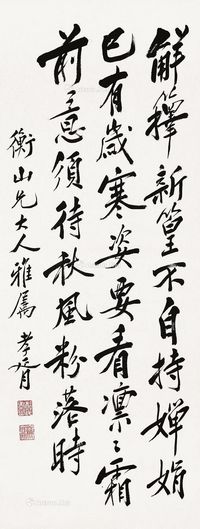 解籜新篁不自持嬋娟
已有歲寒姿要看凛〻霜
前意須待秋風粉落時
衡山先大人雅屬 孝胥